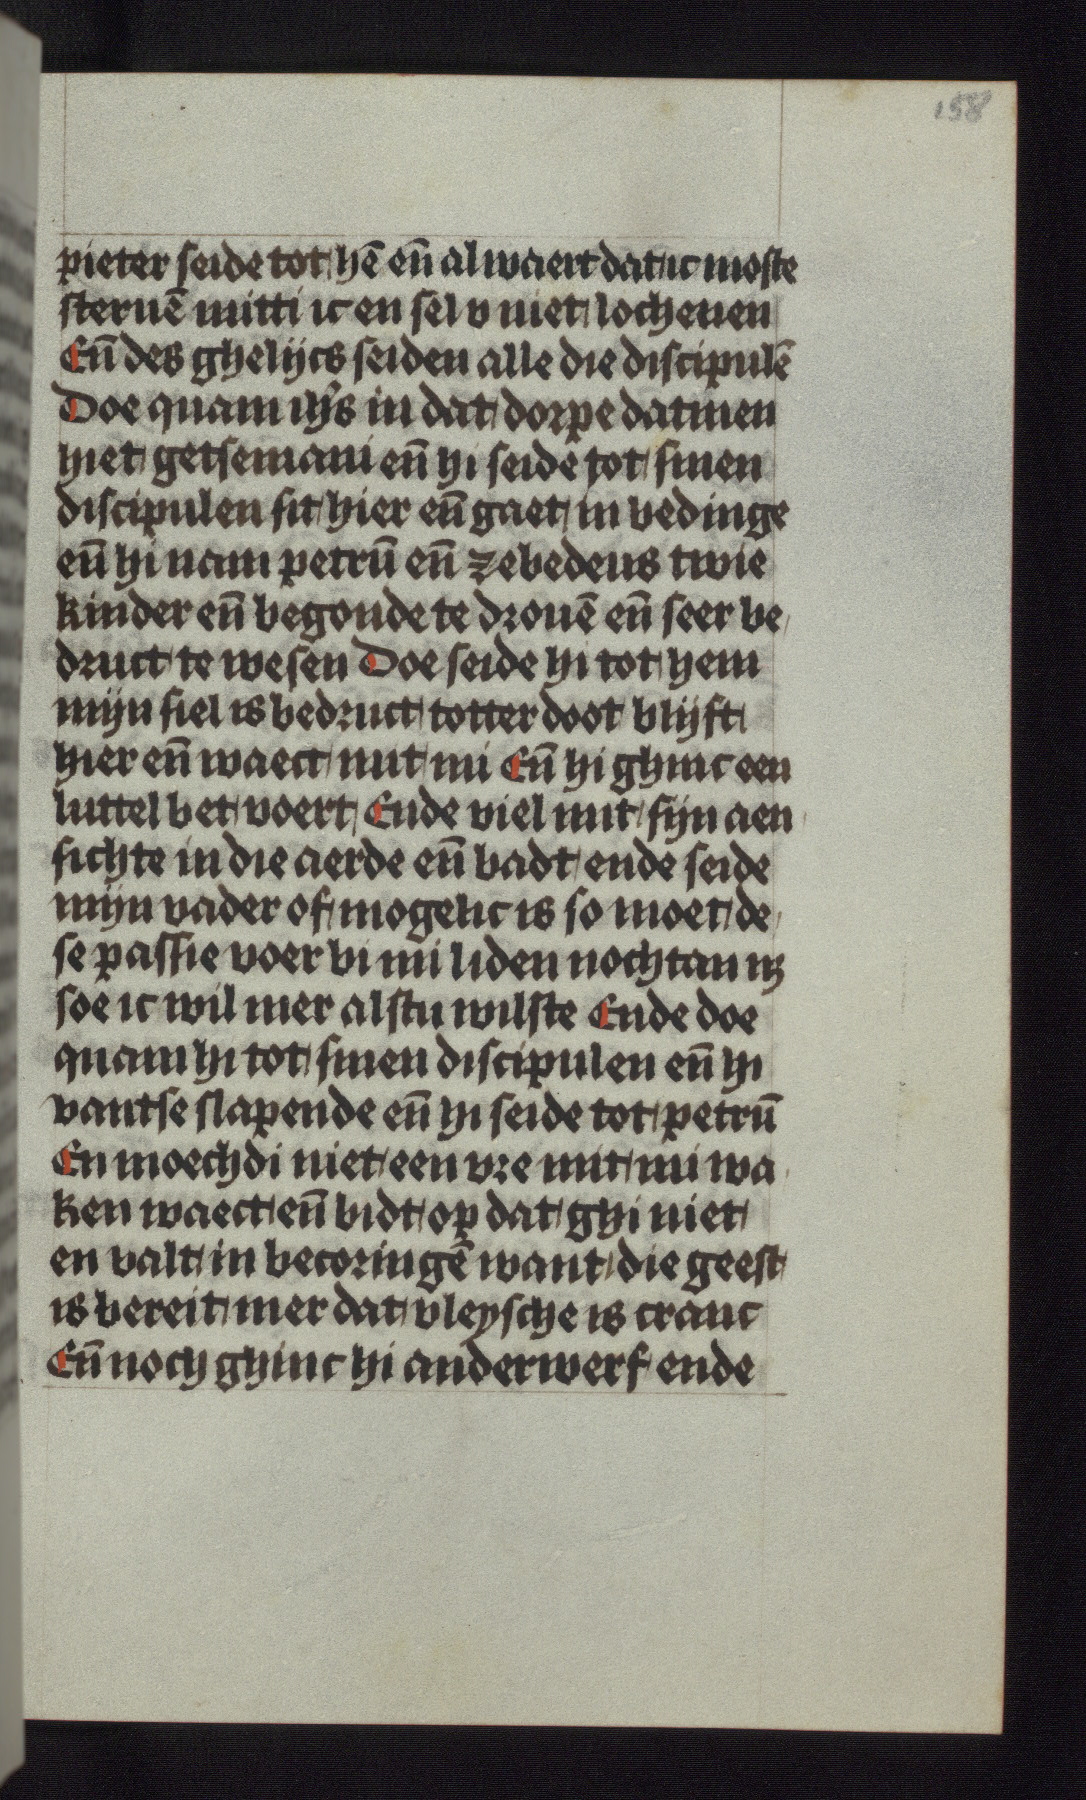 158
pieter seide tot hē en̄ al waert dat ic moste
steruē mitti ic en sel v niet lochenen
En̄ des ghelijcs seiden alle die discipulē
Doe quam ihs̄ in dat dorpe datmen
hiet getsemani en̄ hi seide tot sinen
discipulen sit hier en̄ gaet in bedinge
en̄ hi nam petrū en̄ zebedeus twie
kinder en̄ begonde te drouē en̄ seer be
druct te wesen Doe seide hi tot hem
mijn siel is bedruct totter doot blijft
hier en̄ waect mit mi En̄ hi ghinc een
luttel bet voert Ende viel mit sijn aen
sichte in die aerde en̄ badt ende seide
mijn vader of mogelic is so moet de
se passie voer bi mi liden nochtan nz
soe ic wil mer alstu wilste Ende doe
quam hi tot sinen discipulen en̄ hi
vantse slapende en̄ hi seide tot petrū
En moechdi niet een vre mit mi wa
ken waect en̄ bidt op dat ghi niet
en valt in becoringē want die geest
is bereit mer dat vleysche is cranc
En̄ noch ghinc hi anderwerf ende